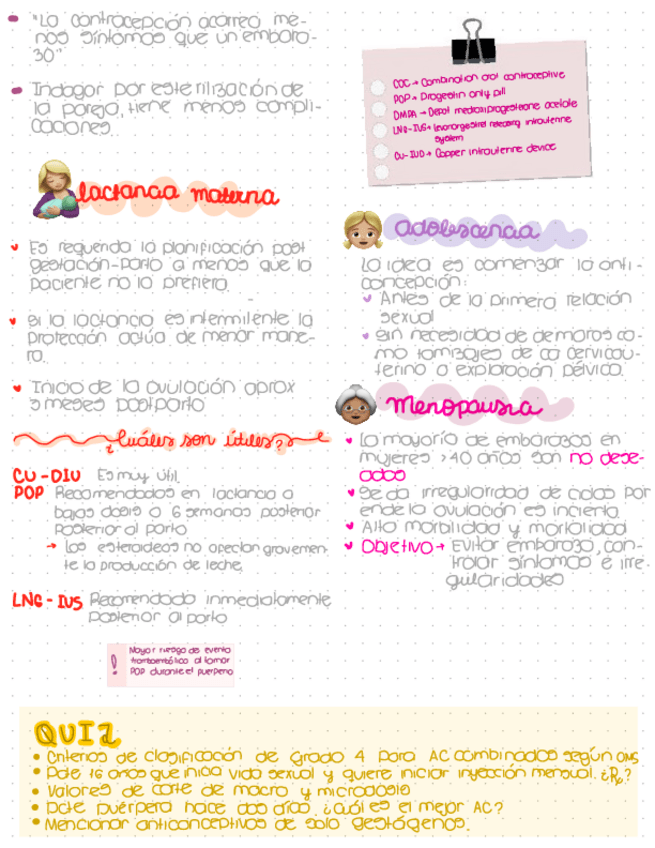 "La contracepción acarrea me-
nos síntomas que un embara-
zo"
Indagar por esterilización de
la pareja, tiene menos compli-
caciones.
COC → Combination oral contraceptive
POP → Progestin only pill
DMPA → Depot medroxiprogesterone acetate
LNG-IUS → levonorgestrel releasing intrauterine
system
Cu-IUD → Copper intrauterine device
lactancia materna
Es requerida la planificación post
gestación-parto a menos que la
paciente no lo prefiera.
Si la lactancia es intermitente la
protección actúa de menor mane-
ra.
Inicio de la ovulación aprox
3 meses postparto
¿Cuáles son útiles?
CU-DIU Es muy útil.
POP Recomendados en lactancia a
bajas dosis o 6 semanas posterior
posterior al parto
→ Los esteroideos no afectan gravemen-
te la producción de leche.
LNG-IUS Recomendado inmediatamente
posterior al parto
! Mayor riesgo de evento
tromboembólico al tomar
POP durante el puerperio
adolescencia
La idea es comenzar la anti-
concepción:
Antes de la primera relación
sexual
Sin necesidad de demoras co-
mo tamizajes de ca cervicou-
terino o exploración pélvica.
Menopausia
La mayoría de embarazos en
mujeres >40 años son no dese-
ados
Se da irregularidad de ciclos por
ende la ovulación es incierta.
Alta morbilidad y mortalidad
Objetivo → Evitar embarazo, con-
trolar síntomas e irre-
gularidades
QUIZ
Criterios de clasificación de grado 4 para AC combinados según OMS
Pcte 16 años que inicia vida sexual y quiere iniciar inyección mensual. ¿Rp?
Valores de corte de macro y microdosis
Pcte puérpera hace dos días. ¿cuál es el mejor AC?
Mencionar anticonceptivos de solo gestágenos.